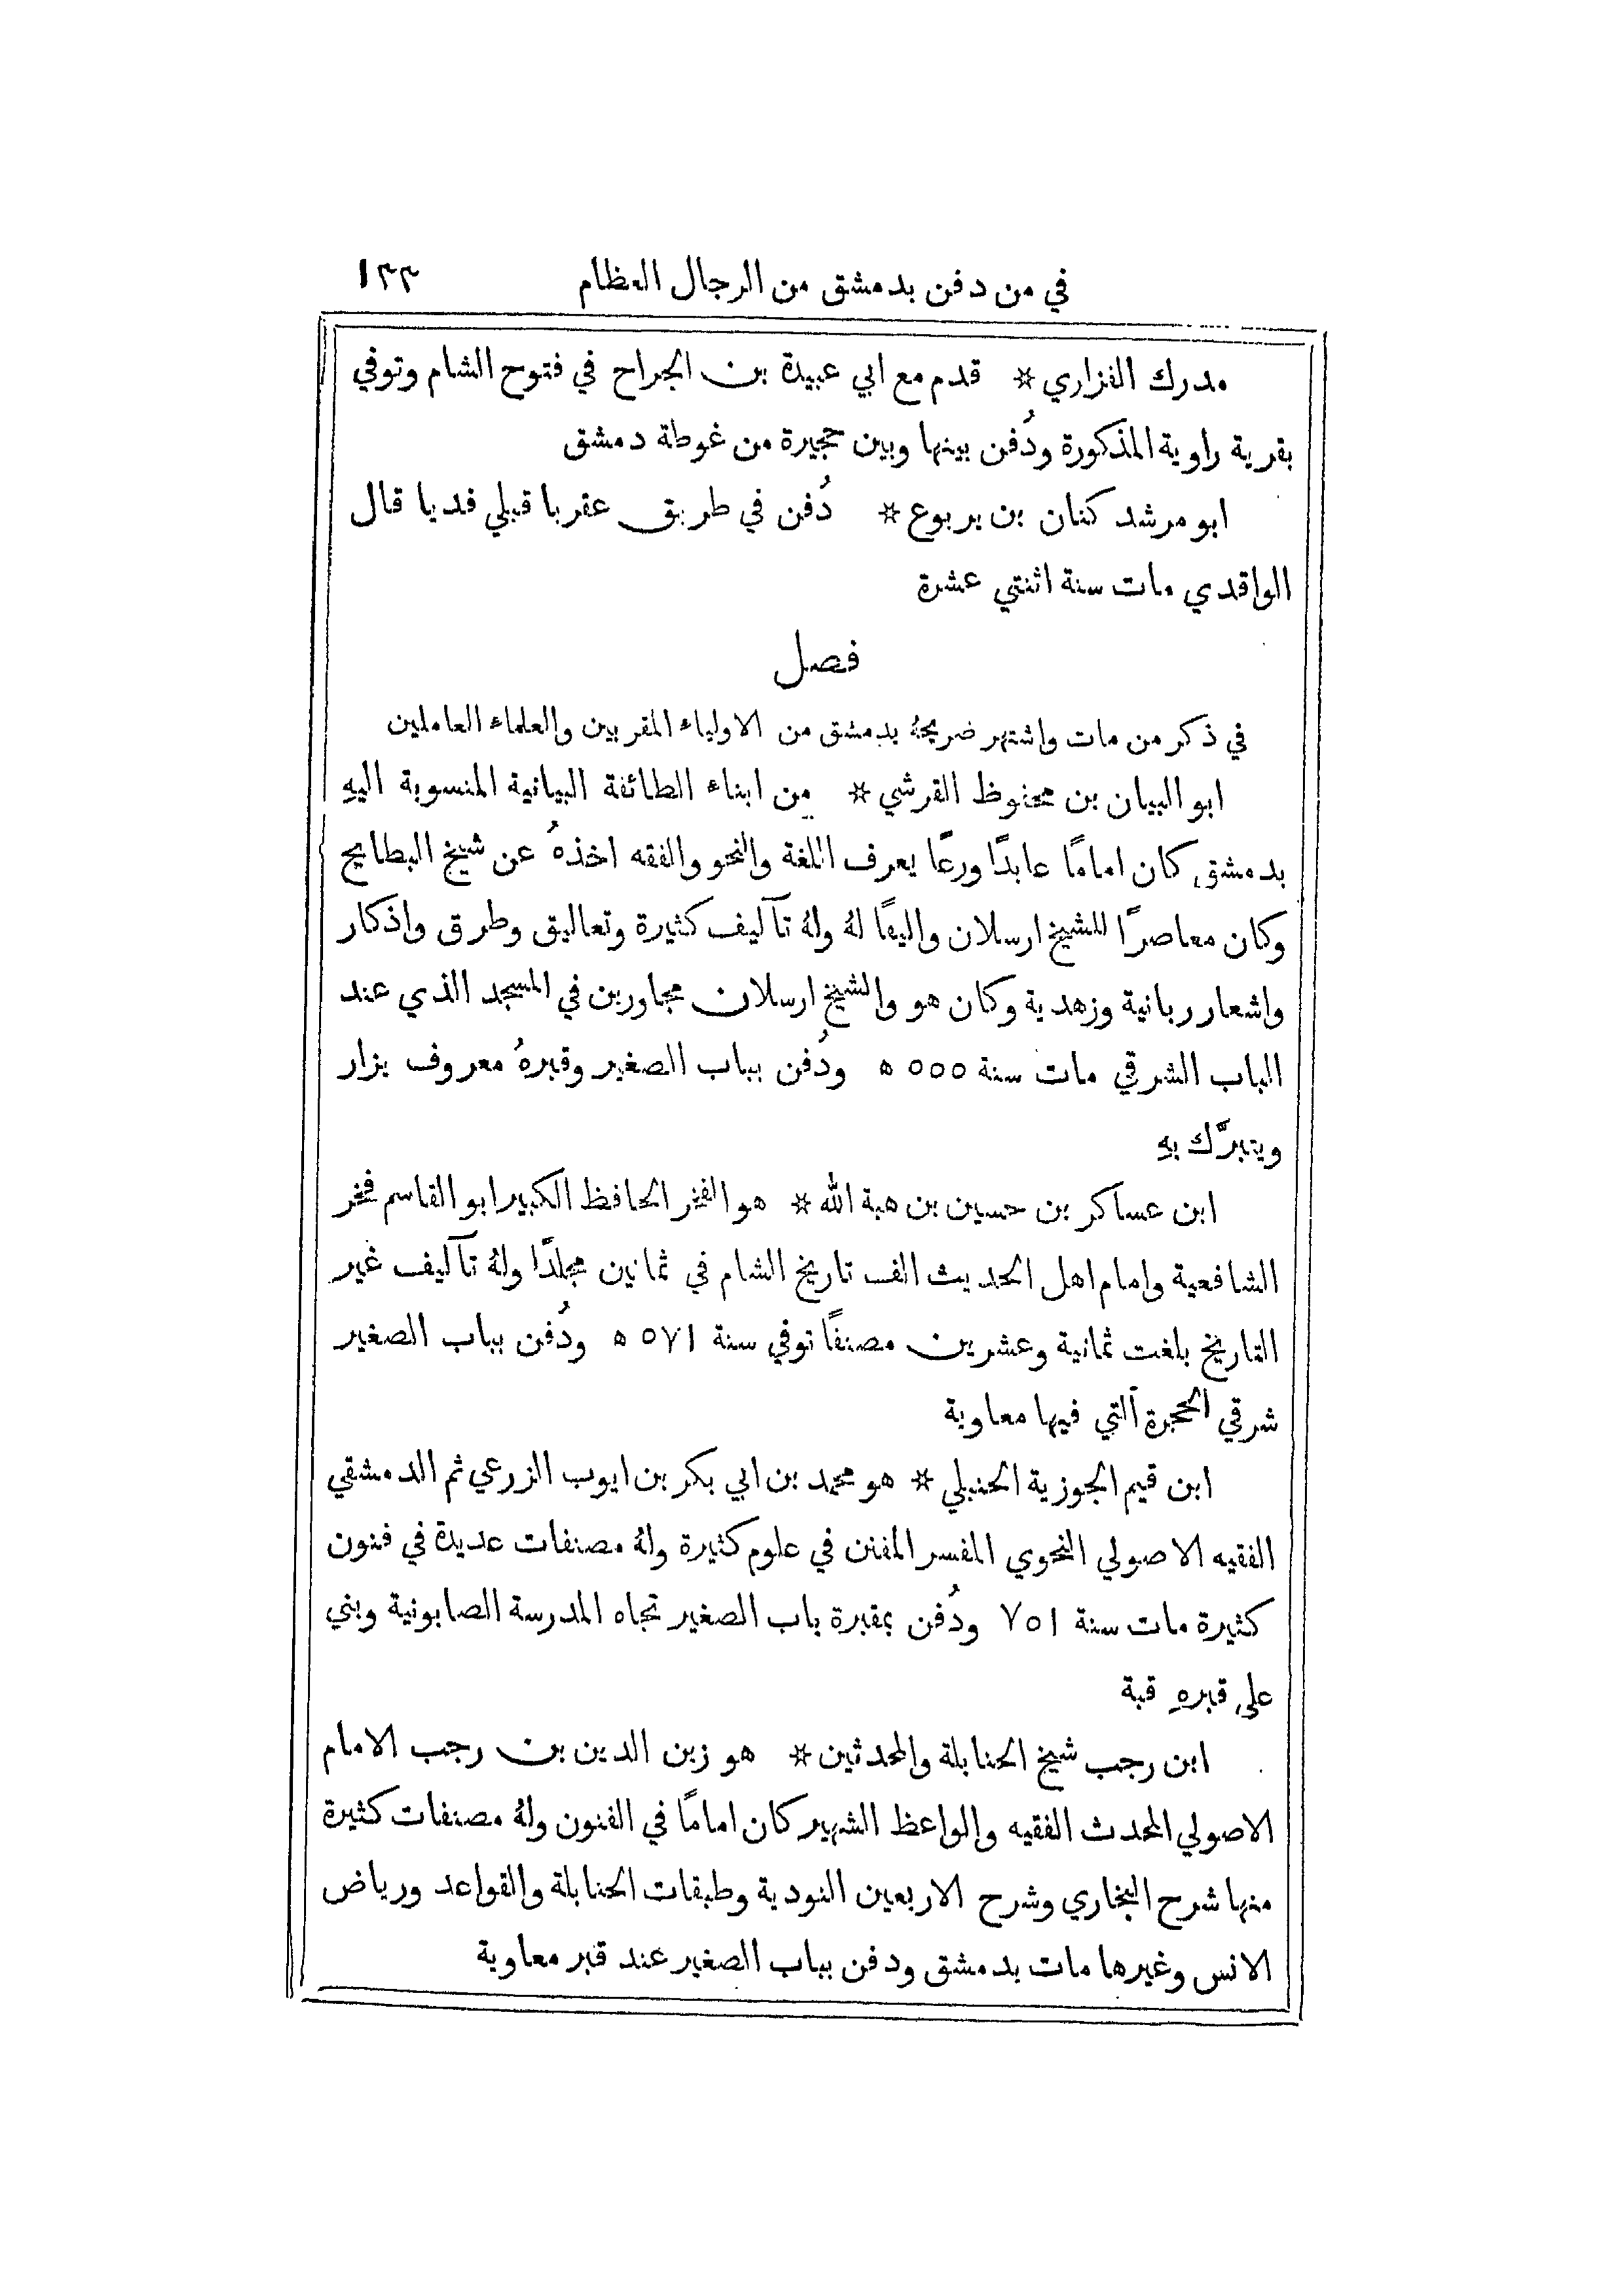 في من دفن بدمشق من الرجال العظام ١٣٣
مدرك الفزاري * قدم مع ابي عبيدة بن الجراح في فتوح الشام وتوفي
بقرية راوية المذكورة ودُفن بينها وبين حجيرة من غوطة دمشق
ابو مرشد كنان بن يربوع * دُفن في طريق عقربا قبلي فديا قال
الواقدي مات سنة اثنتي عشرة
فصل
في ذكر من مات واشتهر ضريحهُ بدمشق من الاولياء المقربين والعلماء العاملين
ابو البيان بن محفوظ القرشي * من ابناء الطائفة البيانية المنسوبة اليهِ
بدمشق كان امامًا عابدًا ورعًا يعرف اللغة والنحو والفقه اخذهُ عن شيخ البطايح
وكان معاصرًا للشيخ ارسلان واليفًا لهُ ولهُ تآليف كثيرة وتعاليق وطرق واذكار
واشعار ربانية وزهدية وكان هو والشيخ ارسلان مجاورين في المسجد الذي عند
الباب الشرقي مات سنة ٥٥٥ ه ودُفن بباب الصغير وقبرهُ معروف يزار
ويتبرَّك بهِ
ابن عساكر بن حسين بن هبة الله * هو الفخر الحافظ الكبير ابو القاسم فخر
الشافعية وامام اهل الحديث الف تاريخ الشام في ثمانين مجلدًا ولهُ تآليف غير
التاريخ بلغت ثمانية وعشرين مصنفًا توفي سنة ٥٧١ ه ودُفن بباب الصغير
شرقي الحجرة التي فيها معاوية
ابن قيم الجوزية الحنبلي * هو محمد بن ابي بكر بن ايوب الزرعي ثم الدمشقي
الفقيه الاصولي النحوي المفسر المفنن في علوم كثيرة ولهُ مصنفات عديدة في فنون
كثيرة مات سنة ٧٥١ ودُفن بمقبرة باب الصغير تجاه المدرسة الصابونية وبني
على قبرهِ قبة
ابن رجب شيخ الحنابلة والمحدثين * هو زين الدين بن رجب الامام
الاصولي المحدث الفقيه والواعظ الشهير كان امامًا في الفنون ولهُ مصنفات كثيرة
منها شرح البخاري وشرح الاربعين النودية وطبقات الحنابلة والقواعد ورياض
الانس وغيرها مات بدمشق ودفن بباب الصغير عند قبر معاوية